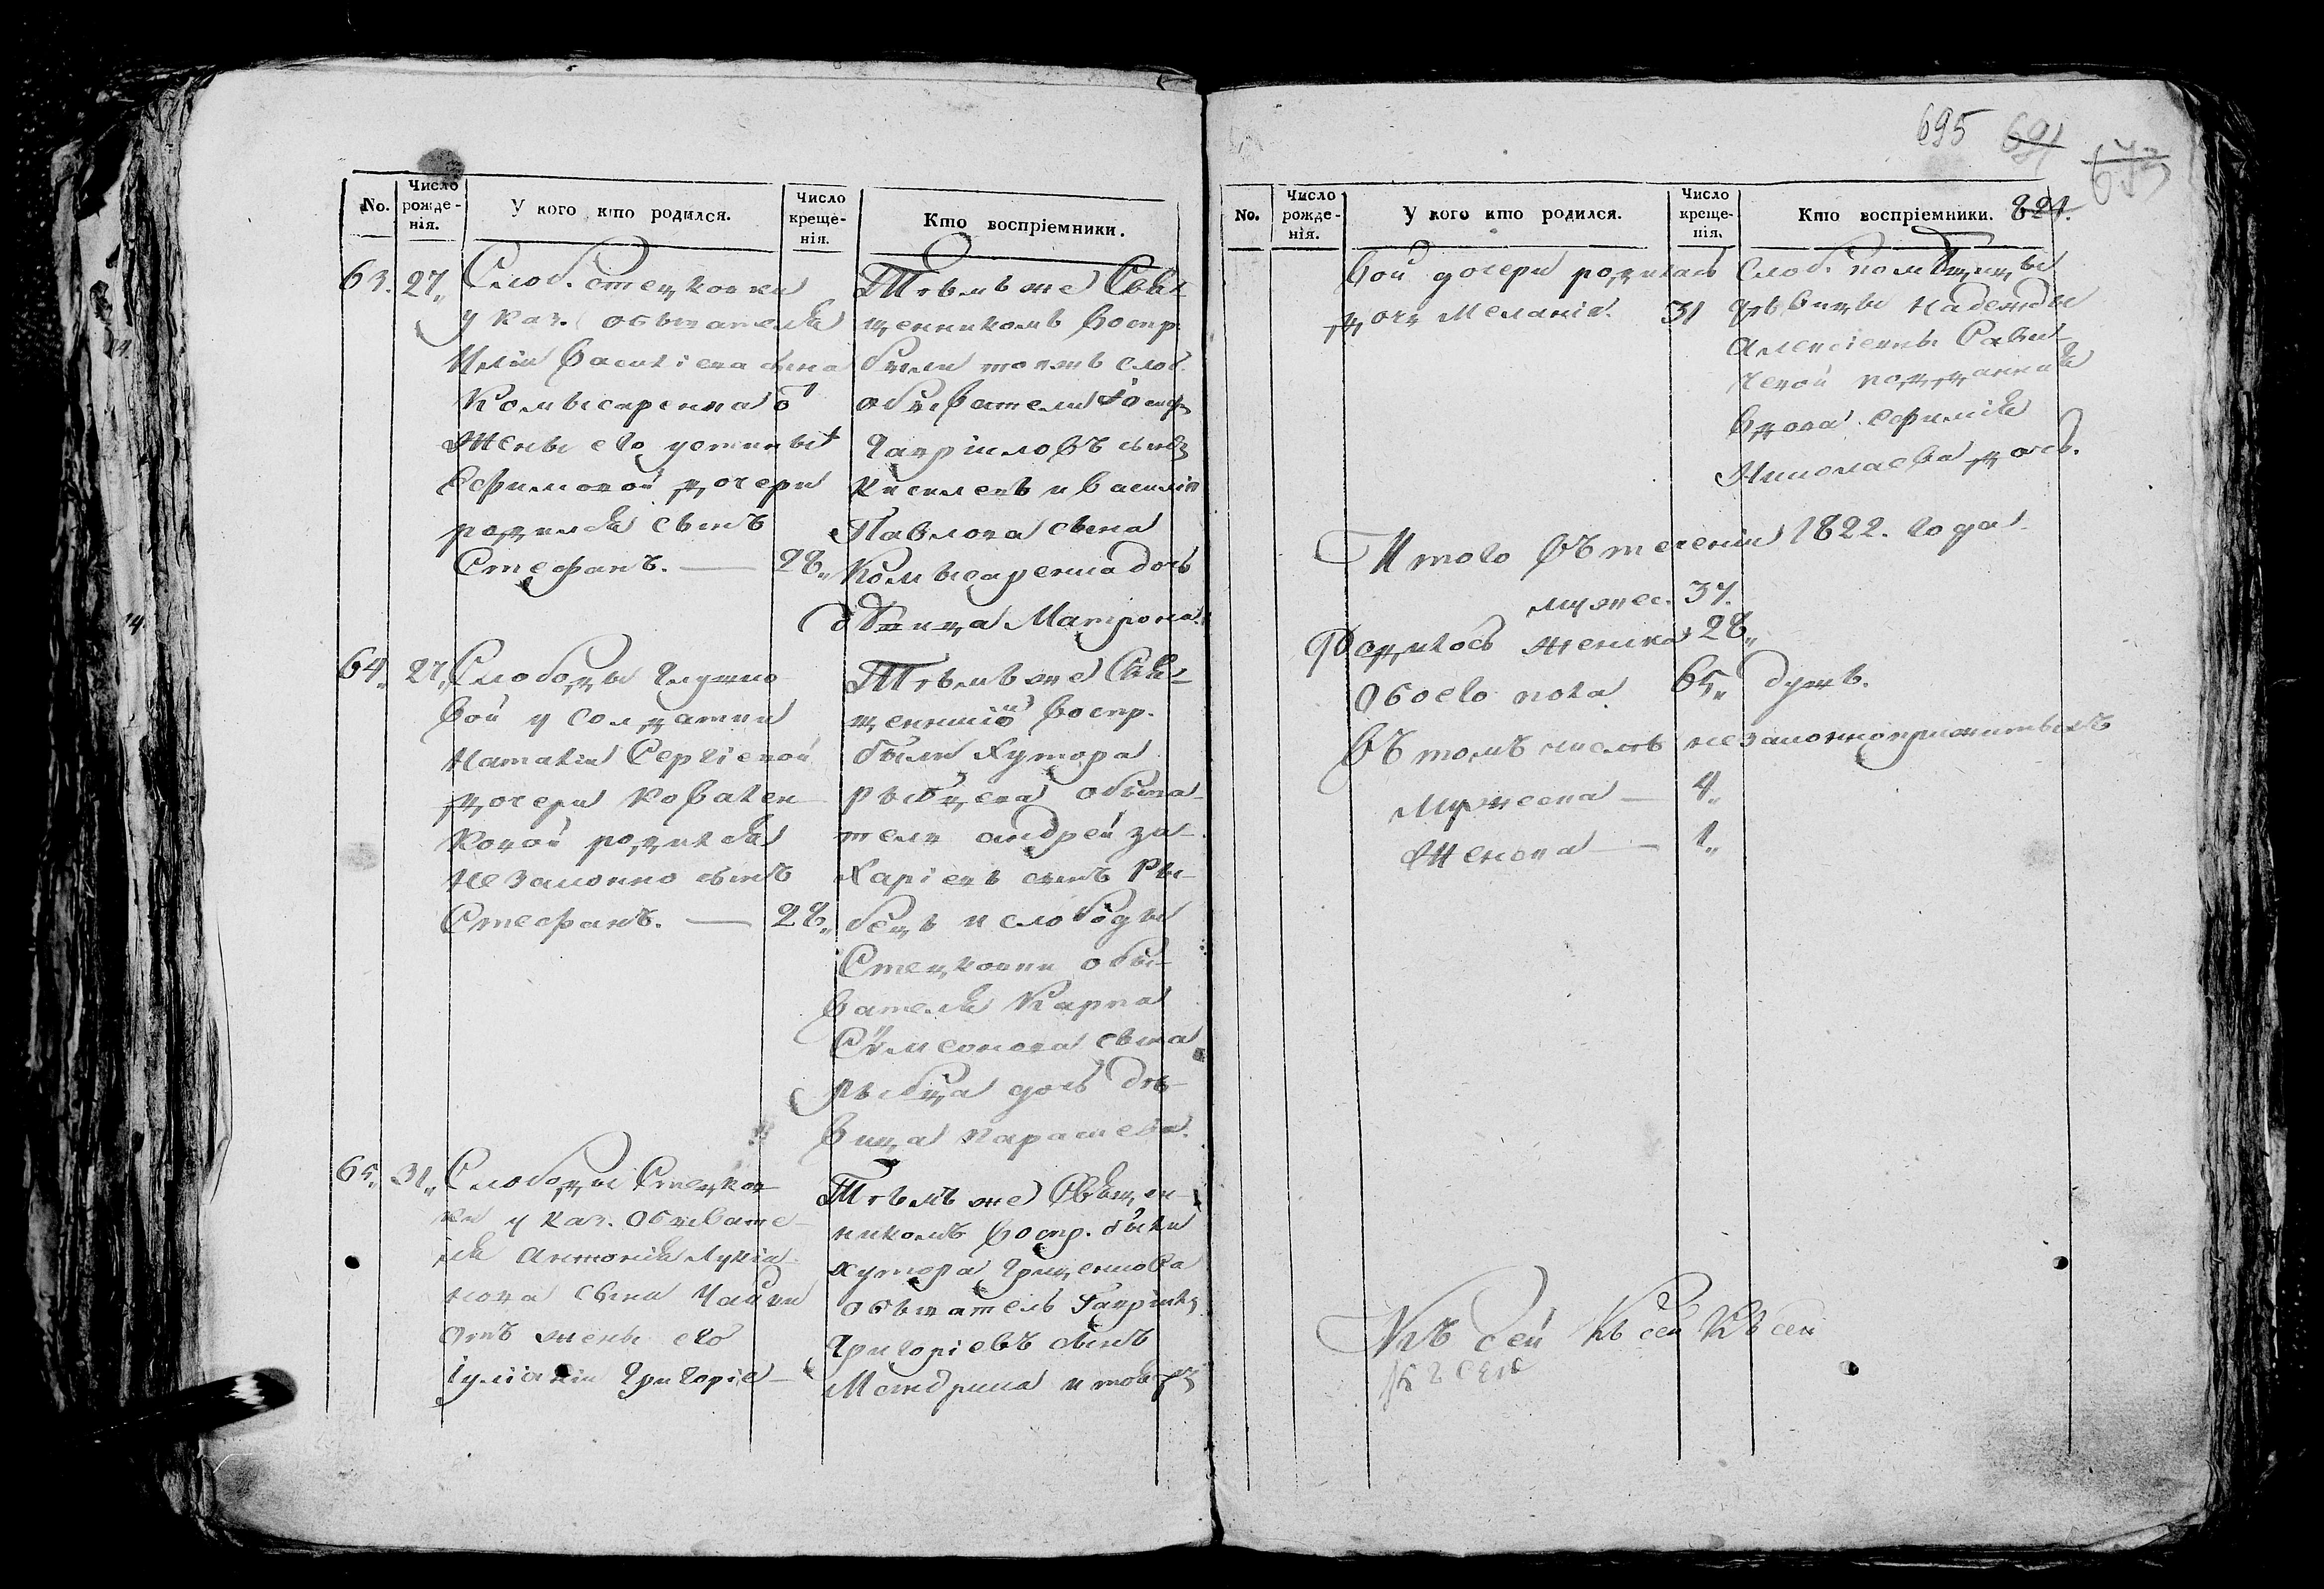 No.
Число рожде- нія.
У кого кто родился.
Число креще- нія.
Кто воспріемники.
63. 27„ Слоб. Стецковки
у каз. обывателя
Иліи Василіева сына
Комысаренка о͞т
жены его Устины
Ефимовой дочери
родился сынъ
Стефанъ. — 28„
Тѣмъ же Свя-
щенникомъ воспр.
были тоежъ слоб.
обыватели
Гавріиловъ сынъ
Киселевъ и Василія
Павлова сына
Комысаренка дочь
дѣвица Матрона.
64„ 27„ Слободы
вой у солдатки
Наталіи Сергіевой
дочери Ковален-
ковой родился
незаконно сынъ
Стефанъ. — 28„
Тѣмъ же Свя-
воспр.
были хутора
Рыбцева обыва-
тели Андрей За-
харіевъ сынъ Ры-
бецъ и слободы
Стецковки обы-
вателя Карпа
Сѵмеонова сына
Рыбца дочь дѣ-
вица Параскева.
65„ 31„ Слободы Стецков-
ки у каз. обывате-
ля Антонія Лукія-
нова сына Чайки
отъ жены его
Іуліаніи Григоріе-
Тѣмъ же Священ-
никомъ воспр. были
хутора Грищенкова
обыватель Гавріилъ
Григоріевъ сынъ
и тоей
695 691
No.
Число рожде- нія.
У кого кто родился.
Число креще- нія.
Кто воспріемники. 821.
вой дочери родилась
дочь Меланія. 31
слоб. помѣщицы
дѣвицы Надежды
Алексіевны Савич-
чевой подданная
вдова Ефимія
Николаева дочь.
Итого въ теченіи 1822. года
мужес. 37.
Родилось женска 28„
Обоего пола 65„ душъ.
Въ томъ числѣ незаконноприжитыхъ
Мужеска — 4„
Женска — 1„
Къ сей Къ сей Къ сей
Къ сей